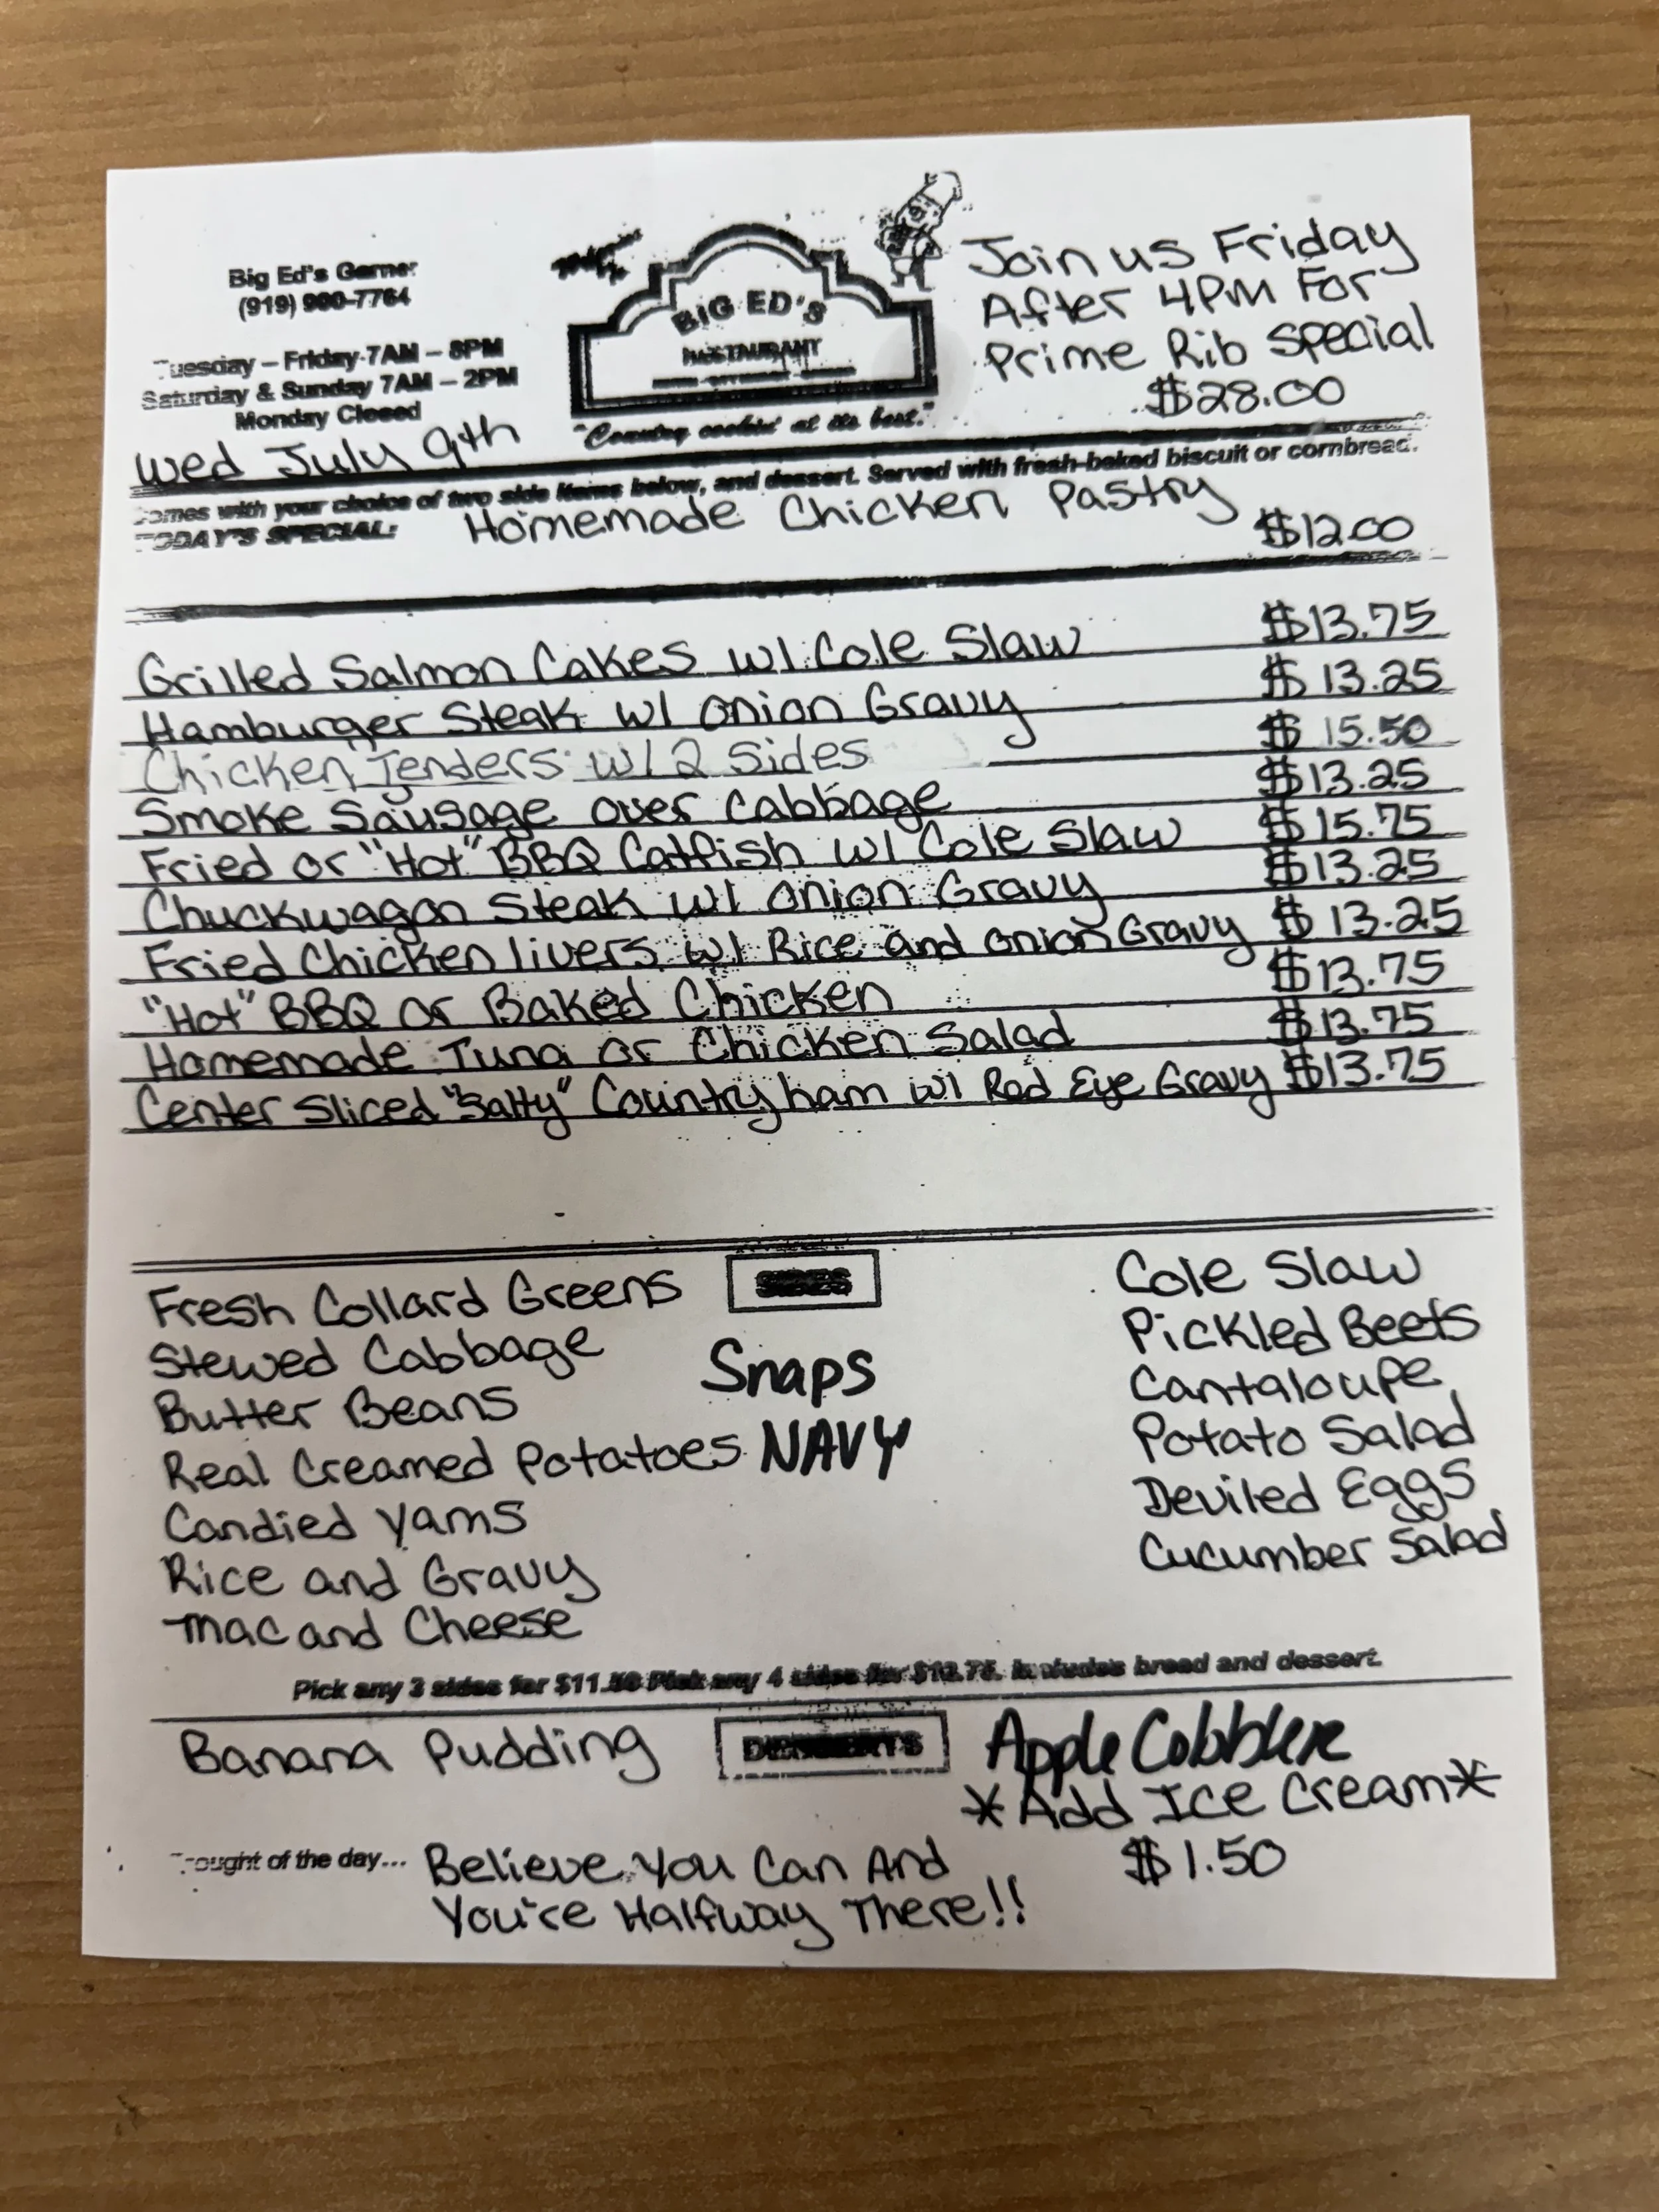 Big Ed's Garner
(919) 900-7764
Tuesday – Friday 7AM – 8PM
Saturday & Sunday 7AM – 2PM
Monday Closed
Wed July 9th
BIG ED'S
RESTAURANT
"Country cookin' at its best."
Join us Friday
After 4PM For
Prime Rib Special
$28.00
Comes with your choice of two side items below, and dessert. Served with fresh-baked biscuit or cornbread.
TODAY'S SPECIAL: Homemade Chicken Pastry $12.00
Grilled Salmon Cakes w/ Cole Slaw $13.75
Hamburger Steak w/ Onion Gravy $13.25
Chicken Tenders w/ 2 Sides $15.50
Smoke Sausage over Cabbage $13.25
Fried or "Hot" BBQ Catfish w/ Cole Slaw $15.75
Chuckwagon Steak w/ Onion Gravy $13.25
Fried Chicken livers w/ Rice and Onion Gravy $13.25
"Hot" BBQ or Baked Chicken $13.75
Homemade Tuna or Chicken Salad $13.75
Center Sliced "Salty" Country ham w/ Red Eye Gravy $13.75
SIDES
Fresh Collard Greens
Stewed Cabbage
Butter Beans
Real Creamed Potatoes
Candied Yams
Rice and Gravy
Mac and Cheese
Snaps
NAVY
Cole Slaw
Pickled Beets
Cantaloupe
Potato Salad
Deviled Eggs
Cucumber Salad
Pick any 3 sides for $11.50 Pick any 4 sides for $12.75. Includes bread and dessert.
DESSERTS
Banana Pudding
Apple Cobbler
*Add Ice Cream*
$1.50
Thought of the day... Believe You Can And
You're Halfway There!!